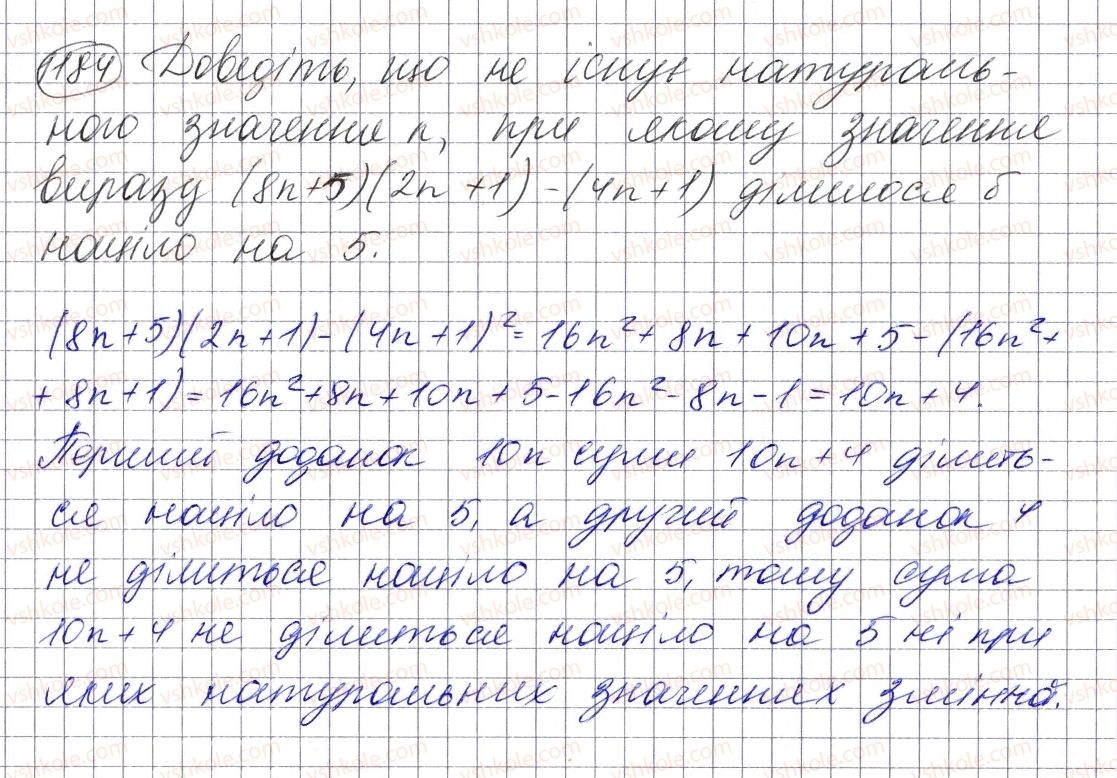 1184 Доведіть, що не існує натураль-
ного значення n, при якому значення
виразу (8n+5)(2n+1)-(4n+1) ділилося б
націло на 5.
(8n+5)(2n+1)-(4n+1)²=16n²+8n+10n+5-(16n²+
+8n+1)=16n²+8n+10n+5-16n²-8n-1=10n+4.
Перший доданок 10n суми 10n+4 ділить-
ся націло на 5, а другий доданок 4
не ділиться націло на 5, тому сума
10n+4 не ділиться націло на 5 ні при
яких натуральних значеннях змінної.